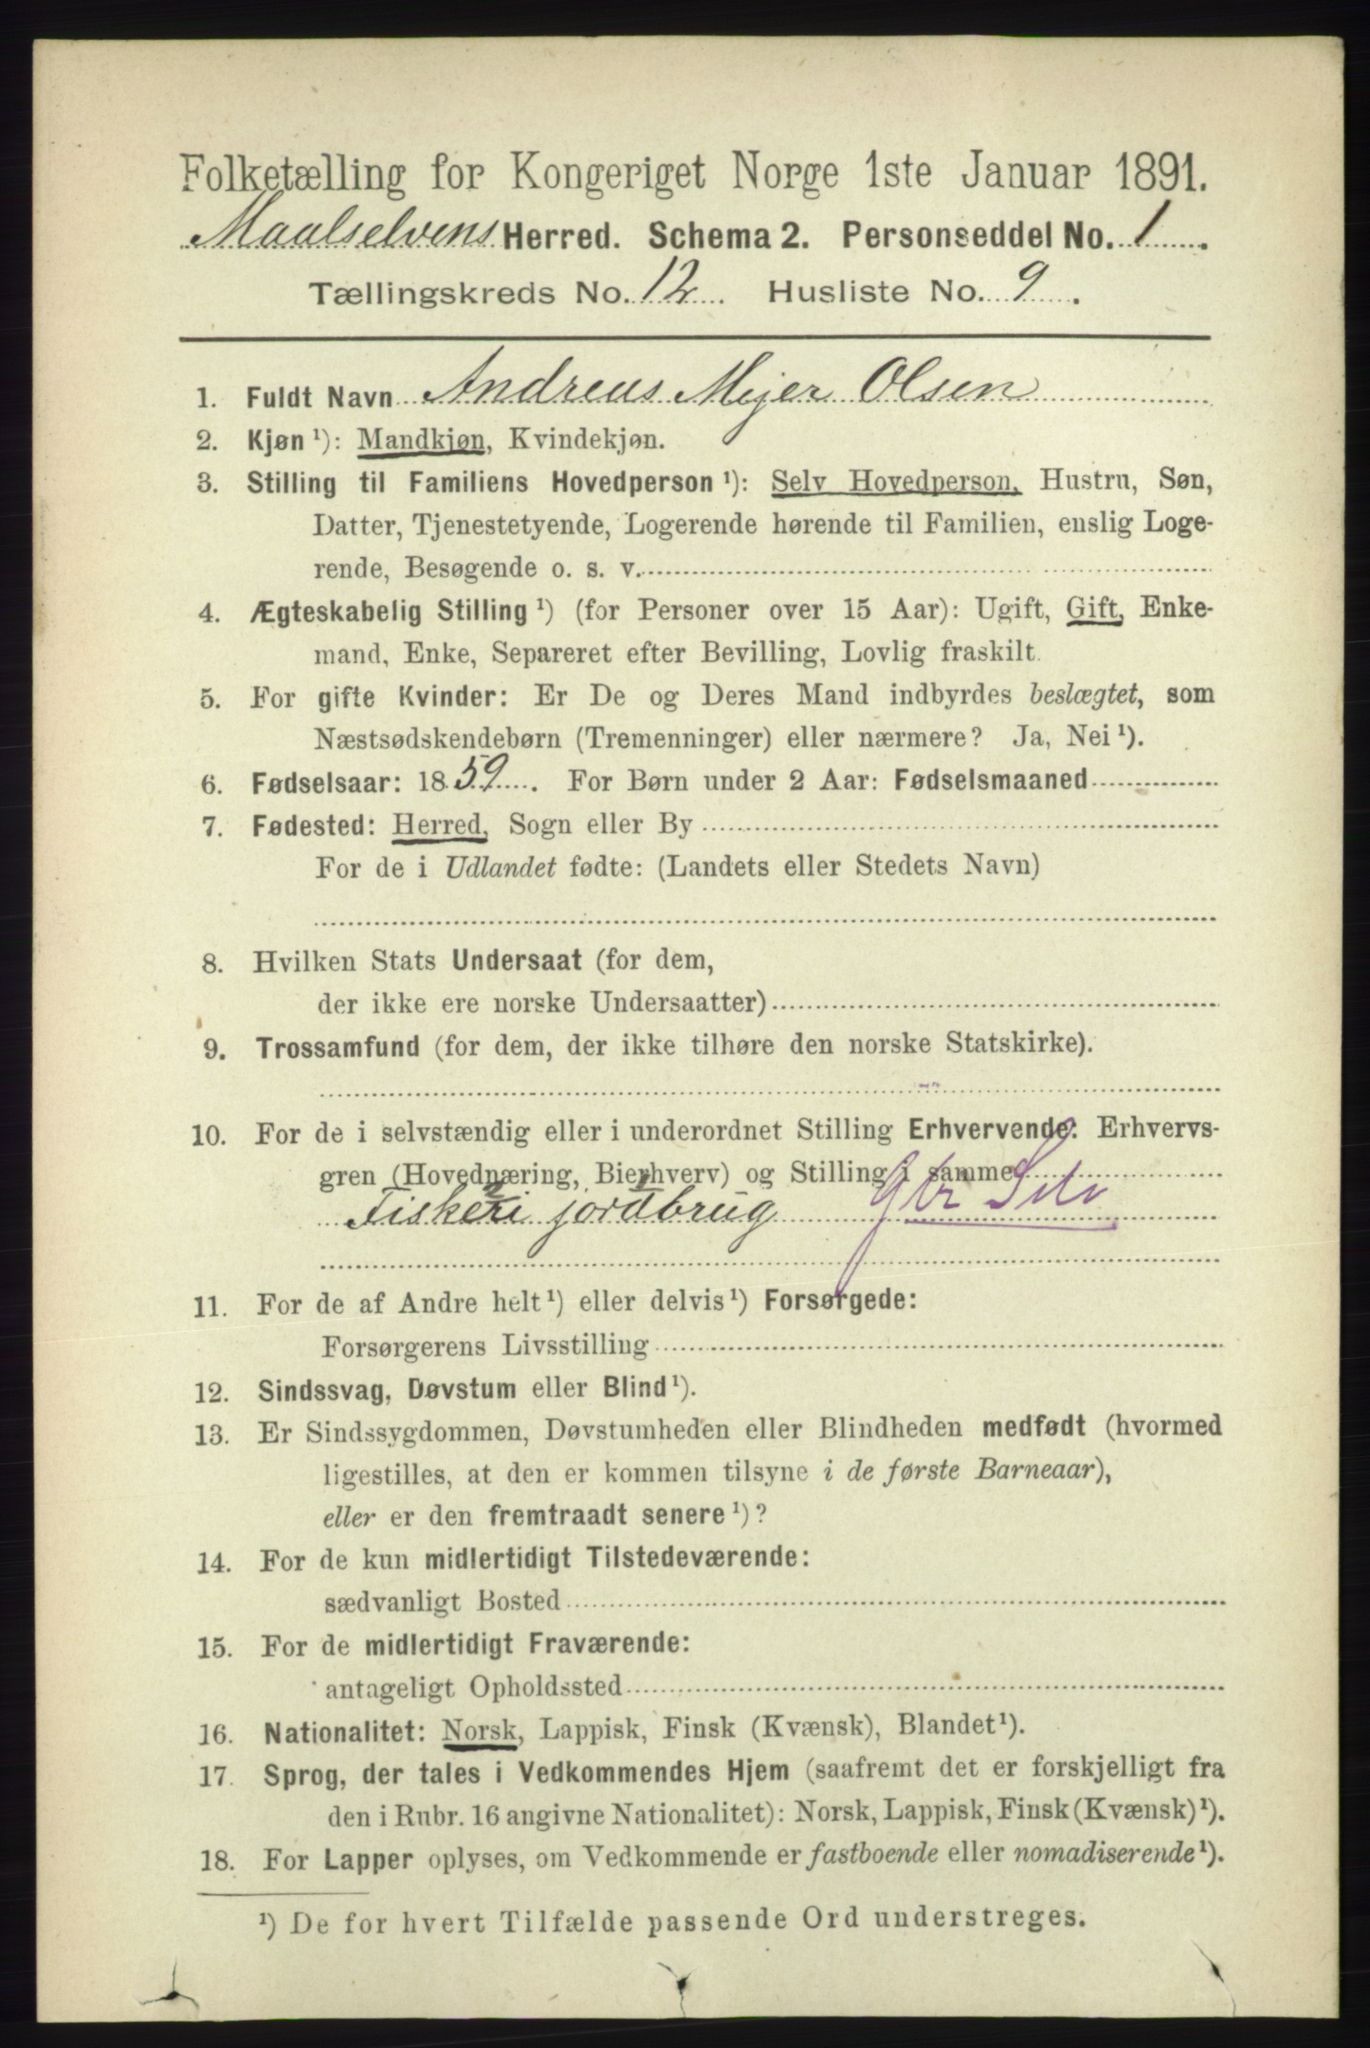 Folketælling for Kongeriget Norge 1ste Januar 1891.
Maalselvens Herred. Schema 2. Personseddel No. 1.
Tællingskreds No. 12. Husliste No. 9.
1. Fuldt Navn Andreas Mejer Olsen
2. Kjøn ¹): Mandkjøn, Kvindekjøn.
3. Stilling til Familiens Hovedperson ¹): Selv Hovedperson, Hustru, Søn,
Datter, Tjenestetyende, Logerende hørende til Familien, enslig Loge-
rende, Besøgende o. s. v.
4. Ægteskabelig Stilling ¹) (for Personer over 15 Aar): Ugift, Gift, Enke-
mand, Enke, Separeret efter Bevilling, Lovlig fraskilt.
5. For gifte Kvinder: Er De og Deres Mand indbyrdes beslægtet, som
Næstsødskendebørn (Tremenninger) eller nærmere? Ja, Nei ¹).
6. Fødselsaar: 1859. For Børn under 2 Aar: Fødselsmaaned
7. Fødested: Herred, Sogn eller By
For de i Udlandet fødte: (Landets eller Stedets Navn)
8. Hvilken Stats Undersaat (for dem,
der ikke ere norske Undersaatter)
9. Trossamfund (for dem, der ikke tilhøre den norske Statskirke).
10. For de i selvstændig eller i underordnet Stilling Erhvervende: Erhvervs-
gren (Hovednæring, Bierhverv) og Stilling i samme
Fiskeri jordbrug Gbr Selv
11. For de af Andre helt ¹) eller delvis ¹) Forsørgede:
Forsørgerens Livsstilling
12. Sindssvag, Døvstum eller Blind ¹).
13. Er Sindssygdommen, Døvstumheden eller Blindheden medfødt (hvormed
ligestilles, at den er kommen tilsyne i de første Barneaar),
eller er den fremtraadt senere ¹)?
14. For de kun midlertidigt Tilstedeværende:
sædvanligt Bosted
15. For de midlertidigt Fraværende:
antageligt Opholdssted
16. Nationalitet: Norsk, Lappisk, Finsk (Kvænsk), Blandet ¹).
17. Sprog, der tales i Vedkommendes Hjem (saafremt det er forskjelligt fra
den i Rubr. 16 angivne Nationalitet): Norsk, Lappisk, Finsk (Kvænsk) ¹).
18. For Lapper oplyses, om Vedkommende er fastboende eller nomadiserende ¹).
¹) De for hvert Tilfælde passende Ord understreges.